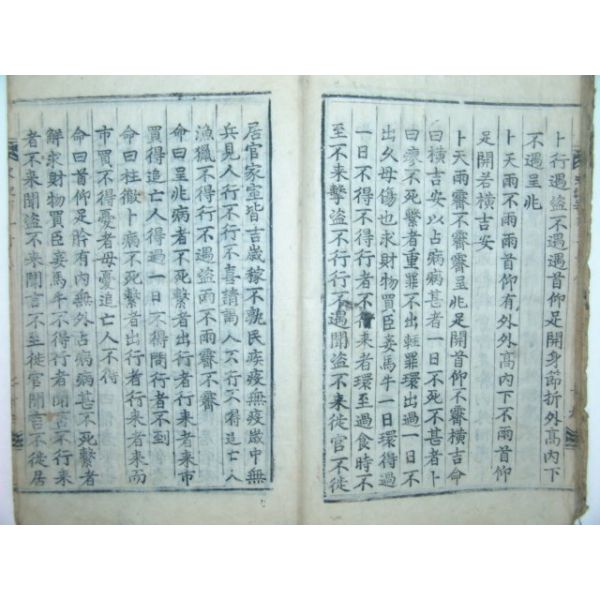 卜行遇盜不遇遇首仰足開身節折外高內下
不遇呈兆
卜天雨不雨雨首仰有外外高內下不雨首仰
足開若橫吉安
卜天雨霽不霽霽呈兆足開首仰不霽橫吉命
曰橫吉安以占病病甚者一日不死不甚者卜
曰瘳不死繫者重罪不出輕罪環出過一日不
出久毋傷也求財物買臣妾馬牛一日環得過
一日不得不得行者不得行來者環至過食時不
至不來擊盜不行行不遇聞盜不來徙官不徙
居官家室皆吉歲稼不孰民疾疫無疫歲中無
兵見人行不行不喜請謁人不行不得追亡人
漁獵不得行不遇盜雨不雨霽不霽
命曰呈兆病者不死繫者出行者行來者來市
買得追亡人得過一日不得問行者不到
命曰柱徹卜病不死繫者出行者行來者來而
市買不得憂者毋憂追亡人不得
命曰首仰足肣有內無外占病病甚不死繫者
解求財物買臣妾馬牛不得行者聞言不行來
者不來聞盜不來聞言不至徙官聞言不徙居